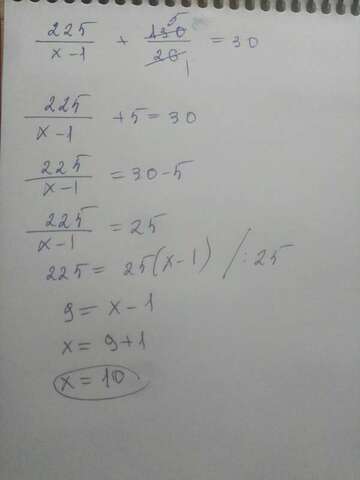 225/(x-1) + 130/26 = 30
5
1
225/(x-1) + 5 = 30
225/(x-1) = 30-5
225/(x-1) = 25
225 = 25(x-1) /:25
9 = x-1
x = 9+1
x = 10